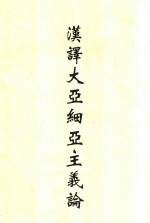 漢譯大亞細亞主義論